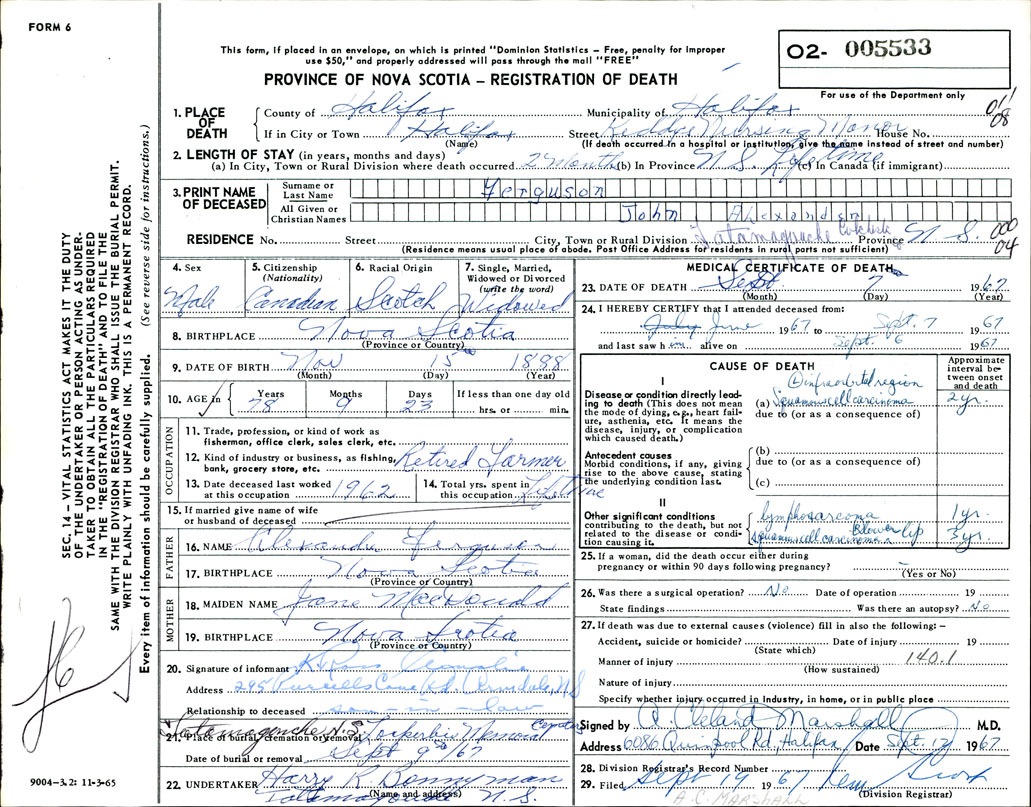 FORM 6
This form, if placed in an envelope, on which is printed "Dominion Statistics – Free, penalty for improper
use $50," and properly addressed will pass through the mail "FREE"
O2- 005533
PROVINCE OF NOVA SCOTIA – REGISTRATION OF DEATH
For use of the Department only
1. PLACE OF DEATH
County of Halifax Municipality of Halifax
If in City or Town Halifax Street Keddys Nursing Manor House No.
(Name) (If death occurred in a hospital or institution, give the name instead of street and number)
2. LENGTH OF STAY (in years, months and days)
(a) In City, Town or Rural Division where death occurred 2 Months (b) In Province N S Lifetime (c) In Canada (if immigrant)
3. PRINT NAME OF DECEASED
Surname or Last Name Ferguson
All Given or Christian Names John Alexander
RESIDENCE No. Street City, Town or Rural Division Tatamagouche Colchester Province N.S.
(Residence means usual place of abode. Post Office Address for residents in rural parts not sufficient)
000
04
4. Sex Male
5. Citizenship (Nationality) Canadian
6. Racial Origin Scotch
7. Single, Married, Widowed or Divorced (write the word) Widowed
8. BIRTHPLACE Nova Scotia
(Province or Country)
9. DATE OF BIRTH Nov 15 1888
(Month) (Day) (Year)
10. AGE in Years 78 Months 9 Days 23 If less than one day old hrs. or min.
OCCUPATION
11. Trade, profession, or kind of work as
fisherman, office clerk, sales clerk, etc.
12. Kind of industry or business, as fishing,
bank, grocery store, etc. Retired Farmer
13. Date deceased last worked at this occupation 1962
14. Total yrs. spent in this occupation Lifetime
15. If married give name of wife
or husband of deceased
FATHER
16. NAME Alexander Ferguson
17. BIRTHPLACE Nova Scotia
(Province or Country)
MOTHER
18. MAIDEN NAME Jane MacDonald
19. BIRTHPLACE Nova Scotia
(Province or Country)
20. Signature of informant
Address 295 Purcells Cove Rd. Armdale, N S
Relationship to deceased son-in-law
21. Place of burial, cremation or removal Tatamagouche N.S. Lockerbie Memorial Cemetery
Date of burial or removal Sept 9th/67
22. UNDERTAKER Harry R. Bonnyman
(Name and address) Tatamagouche N. S.
MEDICAL CERTIFICATE OF DEATH
23. DATE OF DEATH Sept. 7 1967
(Month) (Day) (Year)
24. I HEREBY CERTIFY that I attended deceased from:
July June 1967 to Sept. 7 1967
and last saw him alive on Sept. 6 1967
CAUSE OF DEATH
Approximate interval between onset and death
I
Disease or condition directly leading to death (This does not mean the mode of dying, e.g., heart failure, asthenia, etc. It means the disease, injury, or complication which caused death.)
infraorbital region
(a) Squamous cell carcinoma 2 yr.
due to (or as a consequence of)
Antecedent causes
Morbid conditions, if any, giving rise to the above cause, stating the underlying condition last.
(b)
due to (or as a consequence of)
(c)
II
Other significant conditions
contributing to the death, but not related to the disease or condition causing it.
lymphosarcoma 1 yr.
squamous cell carcinoma lower lip 3 yr.
25. If a woman, did the death occur either during
pregnancy or within 90 days following pregnancy?
(Yes or No)
26. Was there a surgical operation? No Date of operation 19
State findings Was there an autopsy? No
27. If death was due to external causes (violence) fill in also the following: –
Accident, suicide or homicide? Date of injury 19
(State which)
Manner of injury 140.1
(How sustained)
Nature of injury
Specify whether injury occurred in industry, in home, or in public place
Signed by A. Cleland Marshall M.D.
Address 6086 Quinpool Rd, Halifax Date Sept. 12 1967
28. Division Registrar's Record Number
29. Filed Sept 19 1967
(Division Registrar)
A. C. MARSHALL
SEC. 14 – VITAL STATISTICS ACT MAKES IT THE DUTY
OF THE UNDERTAKER OR PERSON ACTING AS UNDERTAKER TO OBTAIN ALL THE PARTICULARS REQUIRED
IN THE "REGISTRATION OF DEATH" AND TO FILE THE
SAME WITH THE DIVISION REGISTRAR WHO SHALL ISSUE THE BURIAL PERMIT.
WRITE PLAINLY WITH UNFADING INK. THIS IS A PERMANENT RECORD.
Every item of information should be carefully supplied. (See reverse side for instructions.)
9004-3.2: 11-3-65